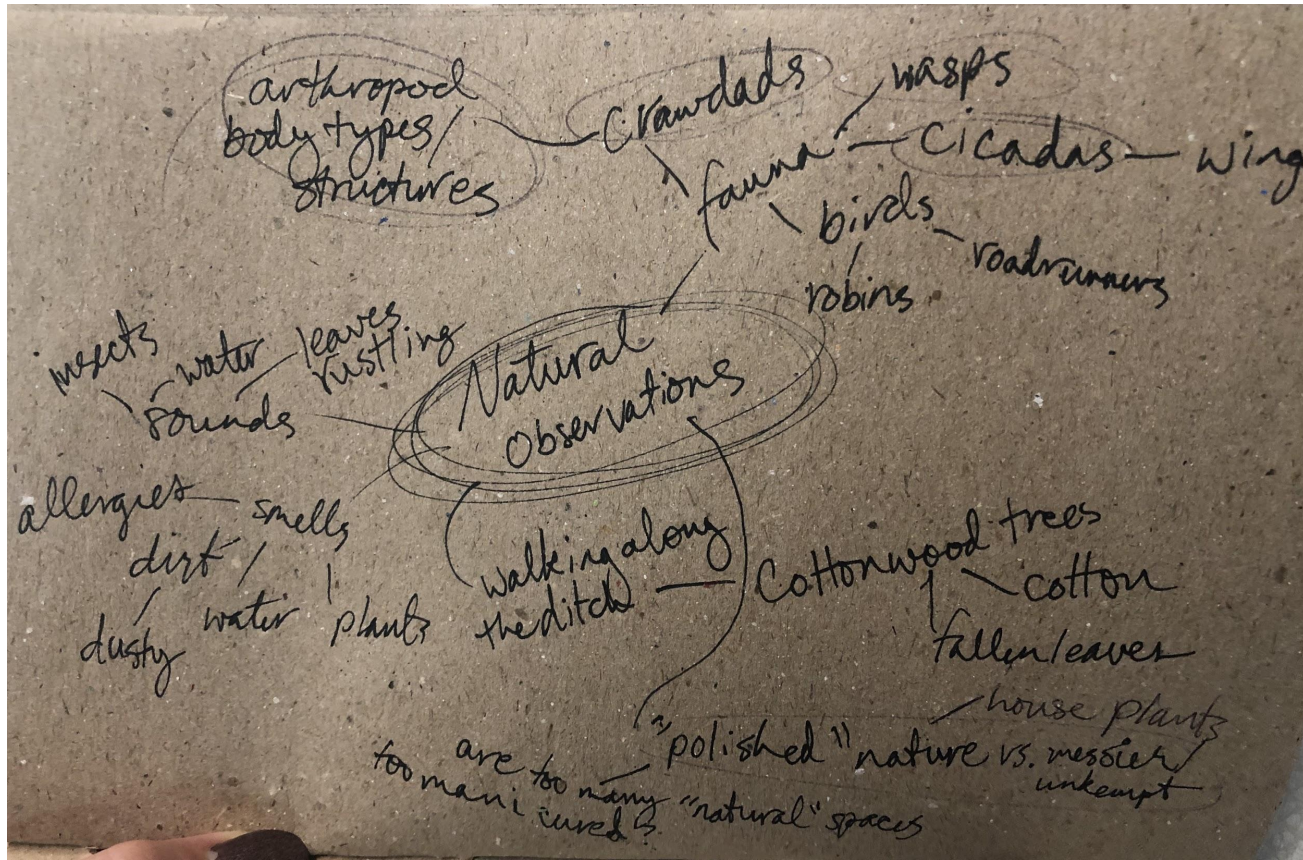 arthropod
body types/
structures
Crawdads
wasps
fauna
Cicadas
wing
birds
roadrunners
robins
Natural
Observations
insects
water
leaves
rustling
sounds
allergies
smells
dirt
dusty
water
plants
walking along
the ditch
Cottonwood trees
cotton
fallen leaves
house plants
"polished" nature vs. messier/
unkempt
are too many "natural" spaces
too manicured?